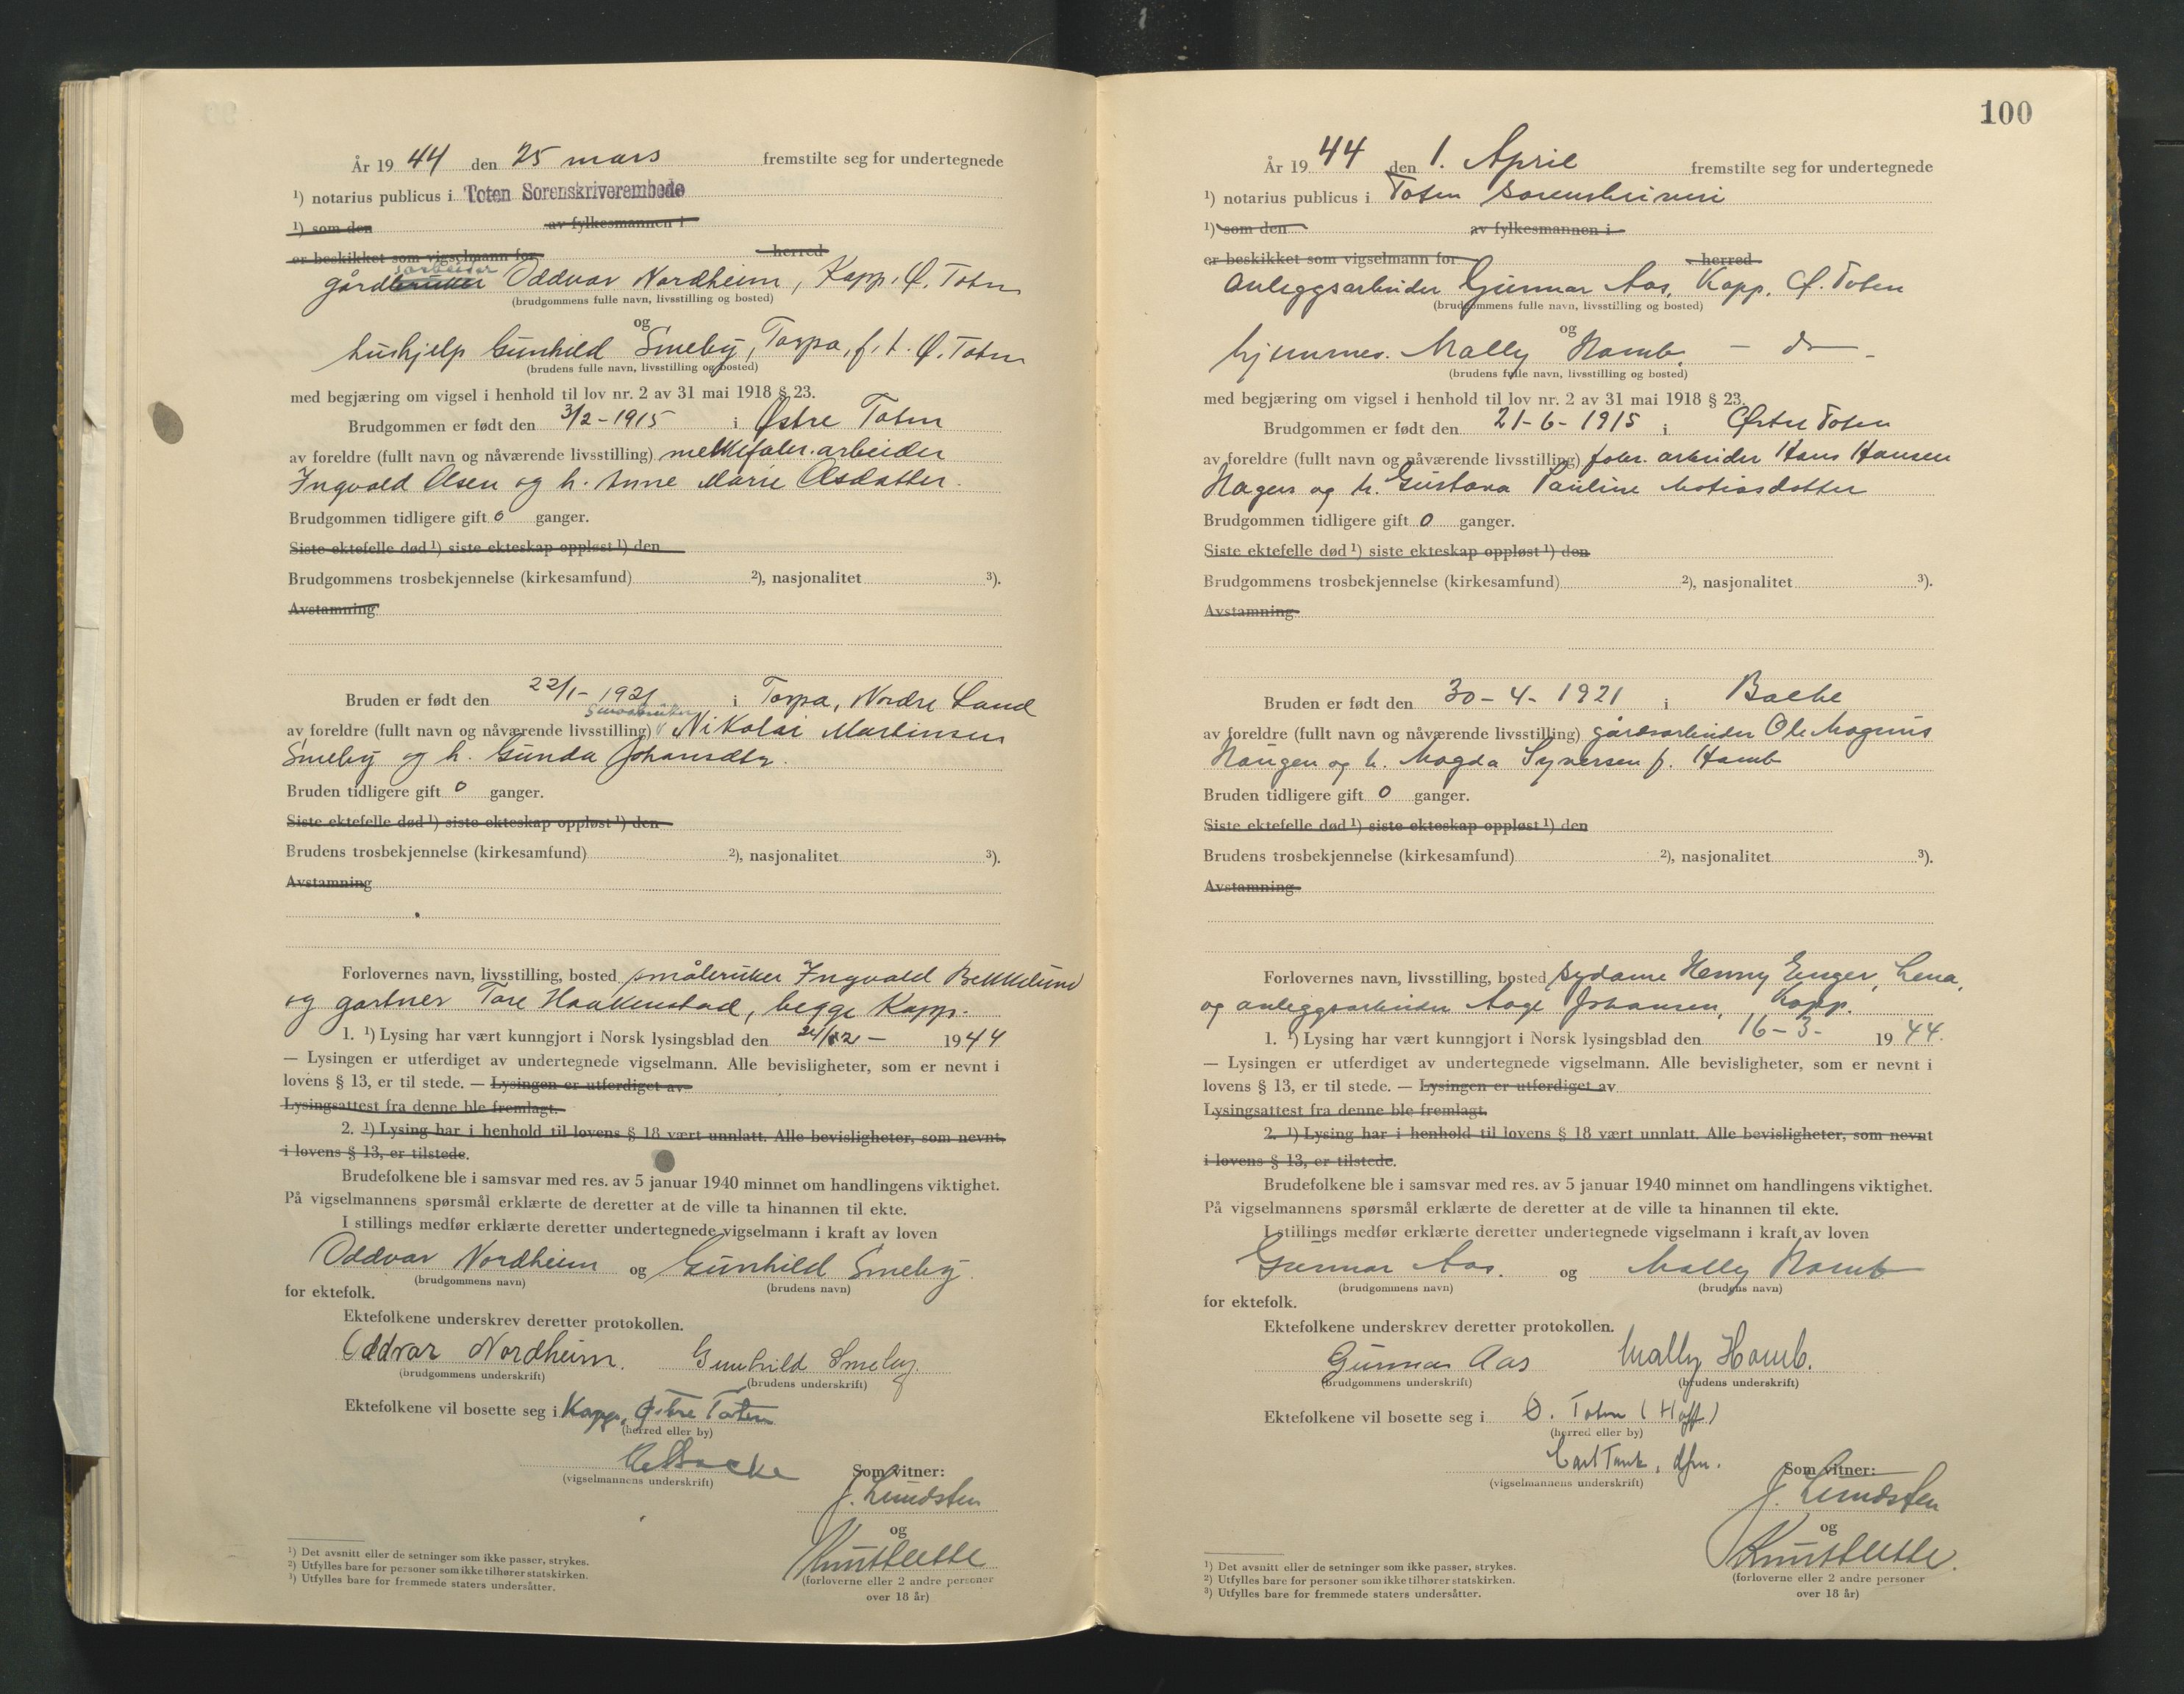 År 19 44 den 25 mars fremstilte seg for undertegnede
¹) notarius publicus i Toten Sorenskriverembede
¹) som den av fylkesmannen i
er beskikket som vigselmann for herred
gårdbruker arbeider Oddvar Nordheim, Kapp, Ø. Toten
(brudgommens fulle navn, livsstilling og bosted)
og
hushjelp Gunhild Smeby, Torpa, f.t. Ø. Toten
(brudens fulle navn, livsstilling og bosted)
med begjæring om vigsel i henhold til lov nr. 2 av 31 mai 1918 § 23.
Brudgommen er født den 3/2-1915 i Østre Toten
av foreldre (fullt navn og nåværende livsstilling) melkefabr. arbeider
Ingvald Olsen og h. Anne Marie Olsdatter.
Brudgommen tidligere gift 0 ganger.
Siste ektefelle død ¹) siste ekteskap oppløst ¹) den
Brudgommens trosbekjennelse (kirkesamfund) ²), nasjonalitet ³).
Avstamning
Bruden er født den 22/1-1921 i Torpa, Nordre Land
småbruker
av foreldre (fullt navn og nåværende livsstilling) Nikolai Martinsen
Smeby og h. Gunda Johansdtr.
Bruden tidligere gift 0 ganger.
Siste ektefelle død ¹) siste ekteskap oppløst ¹) den
Brudens trosbekjennelse (kirkesamfund) ²), nasjonalitet ³).
Avstamning
Forlovernes navn, livsstilling, bosted småbruker Ingvald Bekkelund
og gartner Tore Haakenstad, begge Kapp.
1. ¹) Lysing har vært kunngjort i Norsk lysingsblad den 1944
— Lysingen er utferdiget av undertegnede vigselmann. Alle bevisligheter, som er nevnt i
lovens § 13, er til stede. — Lysingen er utferdiget av
Lysingsattest fra denne ble fremlagt.
2. ¹) Lysing har i henhold til lovens § 18 vært unnlatt. Alle bevisligheter, som nevnt
i lovens § 13, er tilstede.
Brudefolkene ble i samsvar med res. av 5 januar 1940 minnet om handlingens viktighet.
På vigselmannens spørsmål erklærte de deretter at de ville ta hinannen til ekte.
I stillings medfør erklærte deretter undertegnede vigselmann i kraft av loven
Oddvar Nordheim og Gunhild Smeby.
(brudgommens navn) (brudens navn)
for ektefolk.
Ektefolkene underskrev deretter protokollen.
Oddvar Nordheim. Gunhild Smeby.
(brudgommens underskrift) (brudens underskrift)
Ektefolkene vil bosette seg i Kapp, Østre Toten
(herred eller by)
(vigselmannens underskrift) Som vitner:
J. Lundsten
og
(forloverne eller 2 andre personer
over 18 år)
¹) Det avsnitt eller de setninger som ikke passer, strykes.
²) Utfylles bare for personer som ikke tilhører statskirken.
³) Utfylles bare for fremmede staters undersåtter.
100
År 19 44 den 1. April fremstilte seg for undertegnede
¹) notarius publicus i Toten sorenskriveri
¹) som den av fylkesmannen i
er beskikket som vigselmann for herred
anleggsarbeider Gunnar Aas, Kapp, Ø. Toten
(brudgommens fulle navn, livsstilling og bosted)
og
hjemmev. Mally Hamb, — do —
(brudens fulle navn, livsstilling og bosted)
med begjæring om vigsel i henhold til lov nr. 2 av 31 mai 1918 § 23.
Brudgommen er født den 21-6-1915 i Østre Toten
av foreldre (fullt navn og nåværende livsstilling) fabr. arbeider Hans Hansen
Hagen og h. Gustava Pauline Matiasdatter
Brudgommen tidligere gift 0 ganger.
Siste ektefelle død ¹) siste ekteskap oppløst ¹) den
Brudgommens trosbekjennelse (kirkesamfund) ²), nasjonalitet ³).
Avstamning
Bruden er født den 30-4-1921 i Balke
av foreldre (fullt navn og nåværende livsstilling) gårdsarbeider Ole Magnus
Haugen og h. Magda Syversen f. Hamb
Bruden tidligere gift 0 ganger.
Siste ektefelle død ¹) siste ekteskap oppløst ¹) den
Brudens trosbekjennelse (kirkesamfund) ²), nasjonalitet ³).
Avstamning
Forlovernes navn, livsstilling, bosted sydame Henny Enger, Lena,
og anleggsarbeider Aage Johansen, Kapp.
1. ¹) Lysing har vært kunngjort i Norsk lysingsblad den 16-3- 1944.
— Lysingen er utferdiget av undertegnede vigselmann. Alle bevisligheter, som er nevnt i
lovens § 13, er til stede. — Lysingen er utferdiget av
Lysingsattest fra denne ble fremlagt.
2. ¹) Lysing har i henhold til lovens § 18 vært unnlatt. Alle bevisligheter, som nevnt
i lovens § 13, er tilstede.
Brudefolkene ble i samsvar med res. av 5 januar 1940 minnet om handlingens viktighet.
På vigselmannens spørsmål erklærte de deretter at de ville ta hinannen til ekte.
I stillings medfør erklærte deretter undertegnede vigselmann i kraft av loven
Gunnar Aas. og Mally Hamb
(brudgommens navn) (brudens navn)
for ektefolk.
Ektefolkene underskrev deretter protokollen.
Gunnar Aas Mally Hamb.
(brudgommens underskrift) (brudens underskrift)
Ektefolkene vil bosette seg i Ø. Toten (Hoff)
(herred eller by)
Carl Tank, dfm.
(vigselmannens underskrift) Som vitner:
J. Lundsten
og
(forloverne eller 2 andre personer
over 18 år)
¹) Det avsnitt eller de setninger som ikke passer, strykes.
²) Utfylles bare for personer som ikke tilhører statskirken.
³) Utfylles bare for fremmede staters undersåtter.